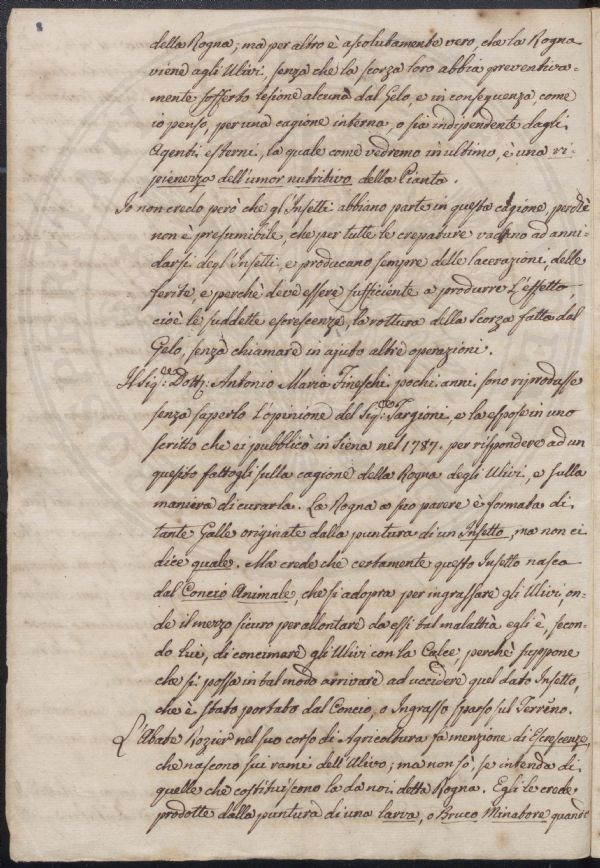 della Rogna; ma per altro è assolutamente vero, che la Rogna
viene agli Ulivi, senza che la scorza loro abbia preventiva-
mente sofferto lesione alcuna dal Gelo, e in conseguenza, come
io penso, per una cagione interna, o sia indipendente dagli
Agenti esterni, la quale come vedremo in ultimo, è una ri-
pienezza dell'umor nutritivo della Pianta.
Io non credo però che gl'Insetti abbiano parte in questa cagione, perchè
non è presumibile, che per tutte le crepature vadano ad anni-
darsi degl'Insetti, e producano sempre delle lacerazioni, delle
ferite, e perchè deve essere sufficiente a produrre l'effetto,
cioè le suddette escrescenze, la rottura della Scorza fatta dal
Gelo, senza chiamare in ajuto altre operazioni.
Il Sig.e Dott: Antonio Maria Fineschi pochi anni sono riprodusse
senza saperlo l'opinione del Sig.e Targioni, e la espose in uno
scritto che ei pubblicò in Siena nel 1787. per rispondere ad un
quesito fattogli sulla cagione della Rogna degli Ulivi, e sulla
maniera di curarla. La Rogna a suo parere è formata di
tante Galle originate dalla puntura di un Insetto, ma non ci
dice quale. Ma crede che certamente questo Insetto nasca
dal Concio Animale, che si adopra per ingrassare gli Ulivi, on-
de il mezzo sicuro per allontare da essi tal malattia egli è, secon-
do lui, di concimare gli Ulivi con la Calce, perchè suppone
che si possa in tal modo arrivare ad uccidere quel dato Insetto,
che è stato portato dal Concio, o Ingrasso sparso sul Terreno.
L'Abate Rozier nel suo corso di Agricoltura fa menzione di Escrescenze,
che nascono sui rami dell'Ulivo; ma non so, se intenda di
quelle che costituiscono la da noi detta Rogna. Egli le crede
prodotte dalla puntura di una larva, o Bruco Minatore quando